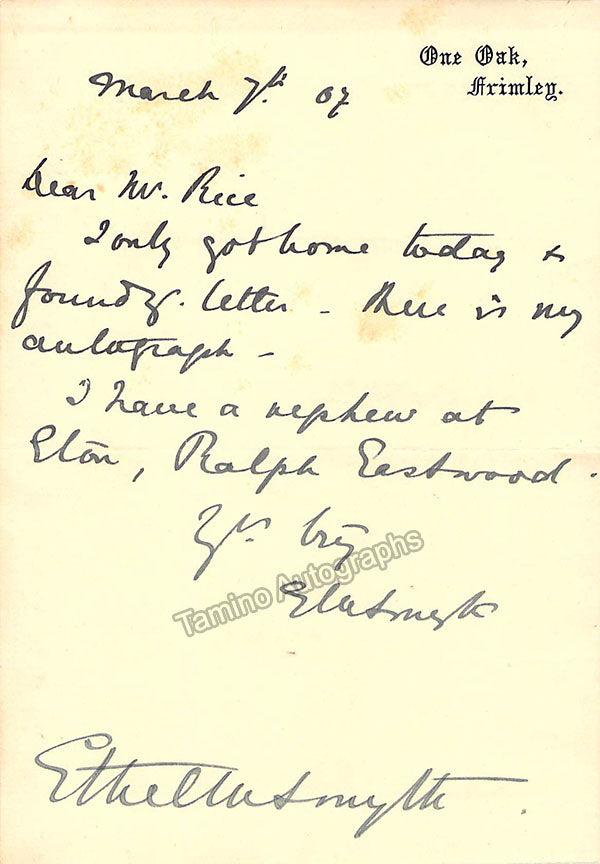 One Oak,
Frimley.
March 7th 07
Dear Mr. Rice
I only got home today &
found yr. letter - Here is my
autograph -
I have a nephew at
Eton, Ralph Eastwood.
Yrs trly
EMSmyth
Tamino Autographs
Ethel M Smyth.